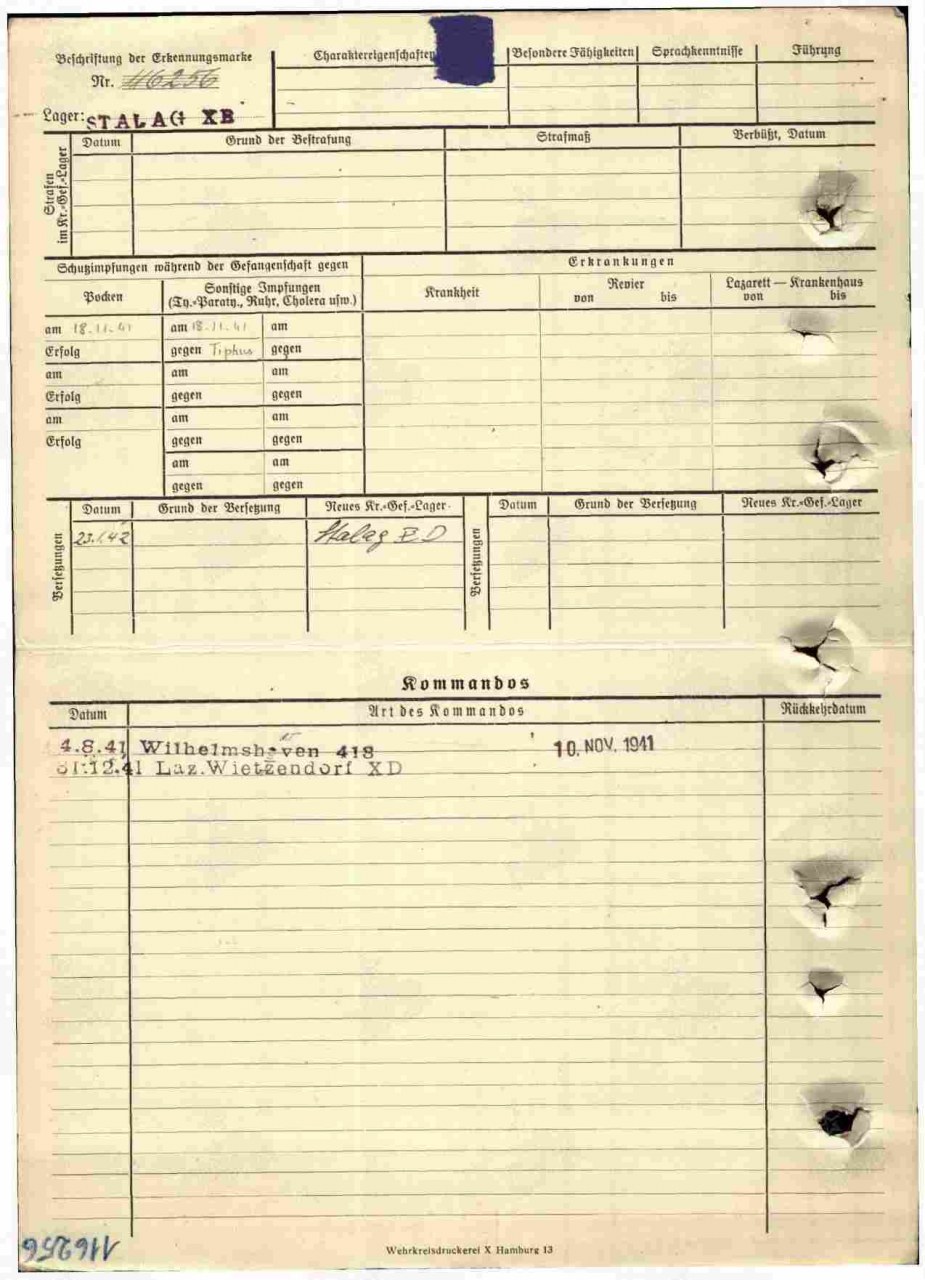 Beschriftung der Erkennungsmarke
Nr. 46256
Lager: STALAG XB
Charaktereigenschaften
Besondere Fähigkeiten
Sprachkenntnisse
Führung
Strafen im Kr.-Gef.-Lager
Datum
Grund der Bestrafung
Strafmaß
Verbüßt, Datum
Schutzimpfungen während der Gefangenschaft gegen
Erkrankungen
Pocken
Sonstige Impfungen
(Ty.-Paraty., Ruhr, Cholera usw.)
Krankheit
Revier
von bis
Lazarett — Krankenhaus
von bis
am 18.11.41 am 18.11.41 am
Erfolg gegen Tiphus gegen
am am am
Erfolg gegen gegen
am am am
Erfolg gegen gegen
am am
gegen gegen
Versetzungen
Datum Grund der Versetzung Neues Kr.-Gef.-Lager
23.1.42 Stalag X D
Versetzungen
Datum Grund der Versetzung Neues Kr.-Gef.-Lager
Kommandos
Datum Art des Kommandos Rückkehrdatum
4.8.41 Wilhelmshaven 418 10. NOV. 1941
31.12.41 Laz.Wietzendorf XD
Wehrkreisdruckerei X Hamburg 13
116256